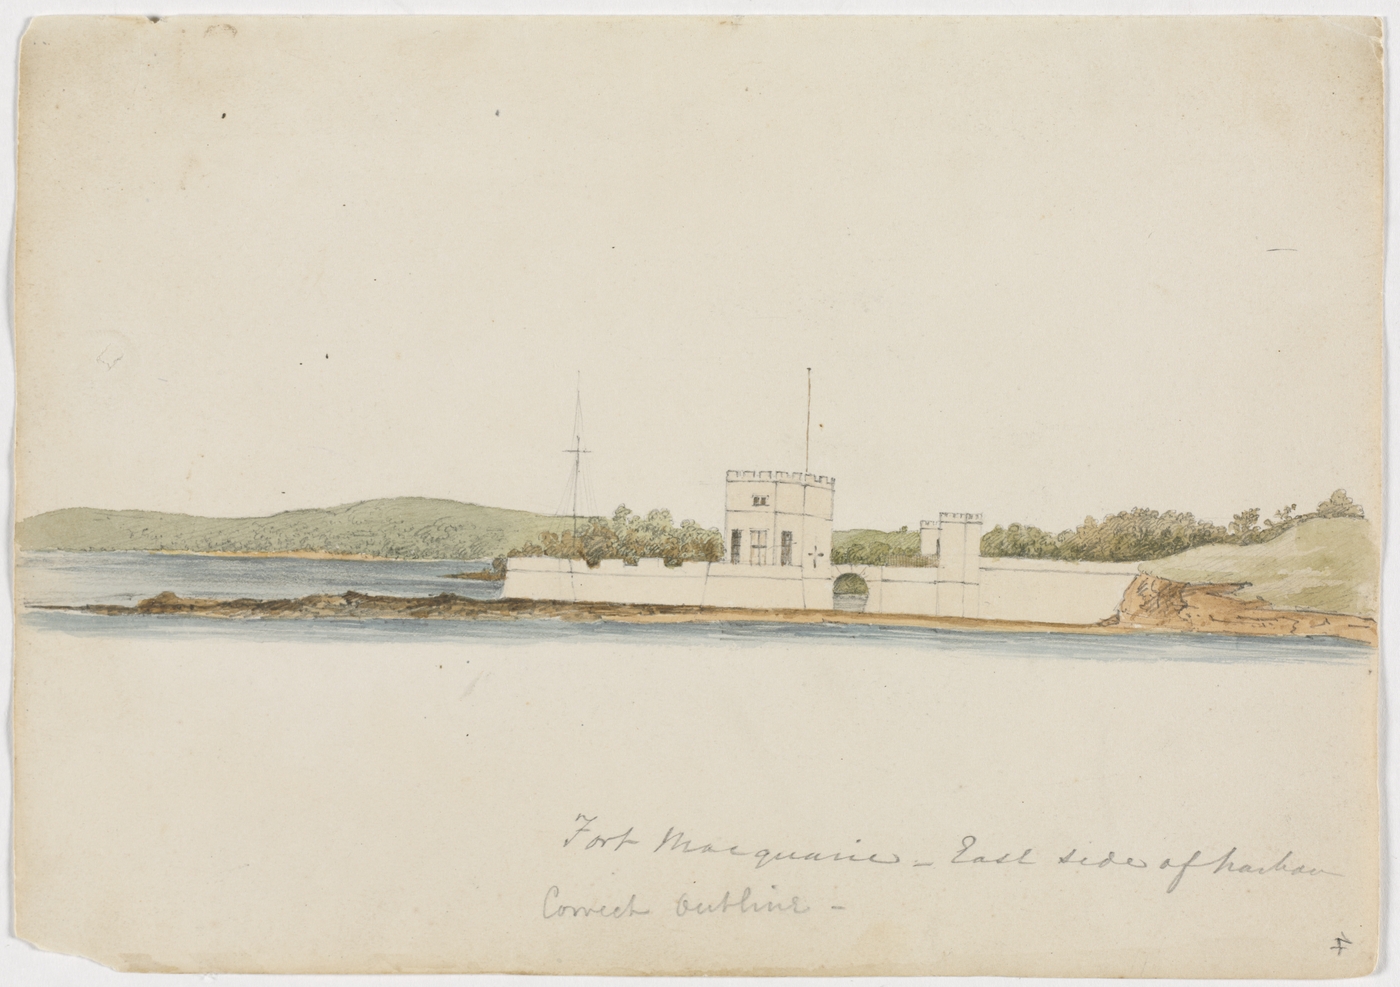 Fort Macquarie - East side of harbour
Correct Outline -
4